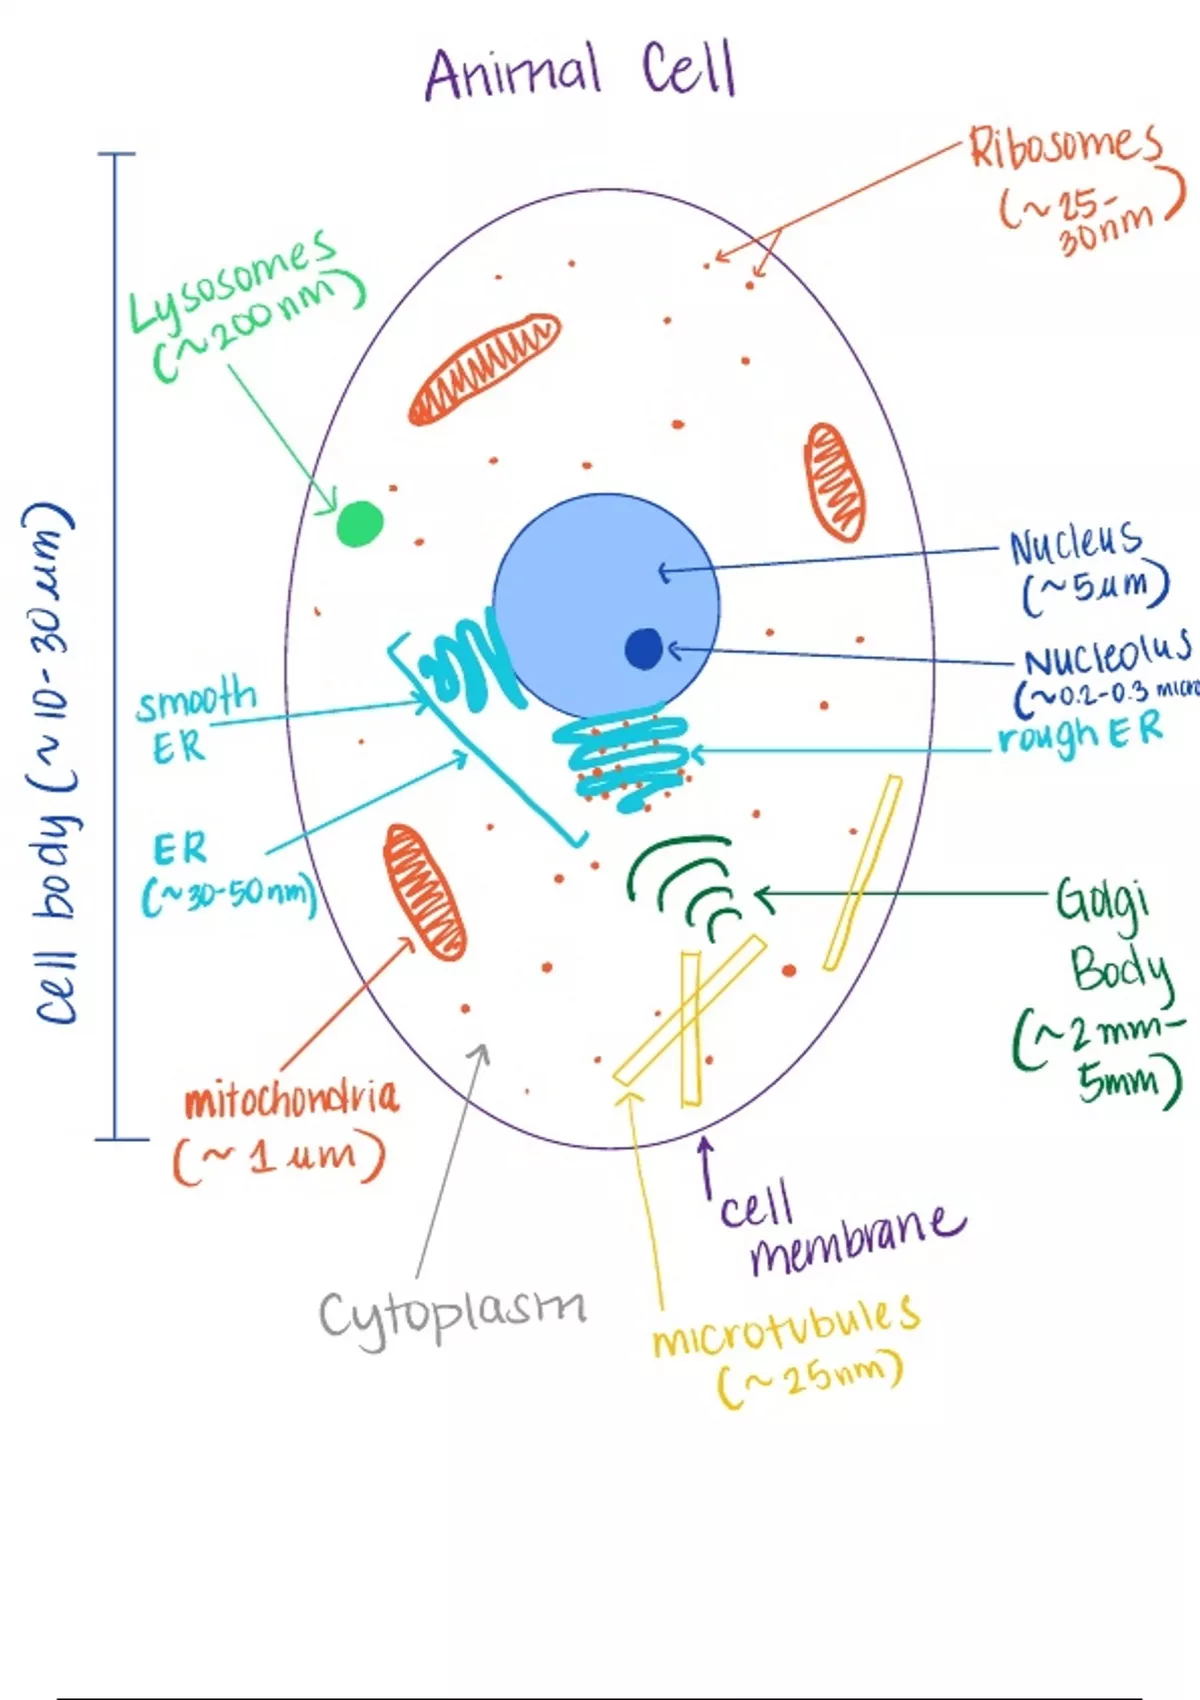 Animal Cell
Ribosomes
(~25-
30nm)
Lysosomes
(~200nm)
cell body (~10-30um)
Nucleus
(~5um)
Nucleolus
(~0.2-0.3 micro
rough ER
smooth
ER
ER
(~30-50nm)
Golgi
Body
(~2mm-
5mm)
mitochondria
(~1um)
cell
membrane
Cytoplasm
microtubules
(~25nm)